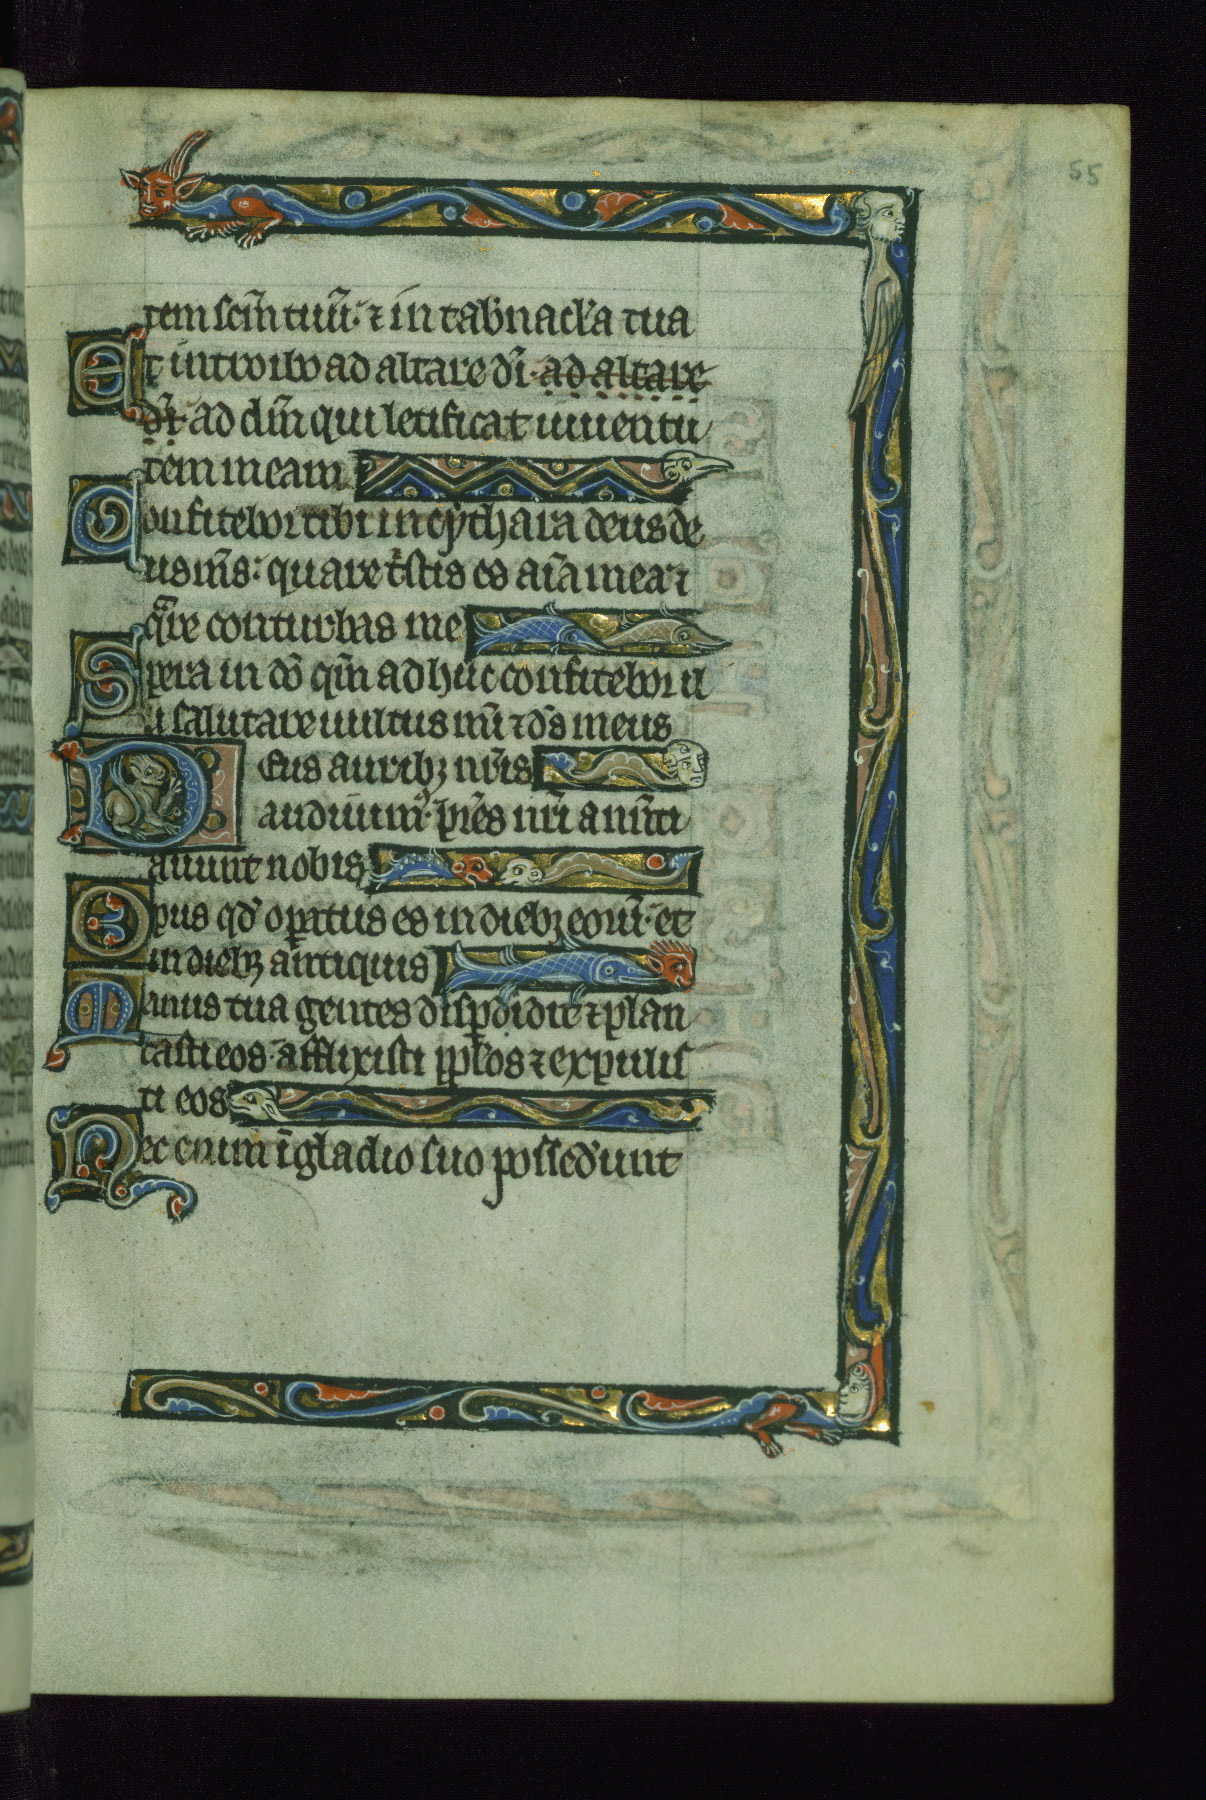 55
tem scm̄ tuū· ⁊ in tab̄nacl̓a tua
Et introibo ad altare dī· ad altare
dī· ad dm̄ qui letificat iuuentu
tem meam
Confitebor tibi in cythara deus de
us ms̄: quare tͥstis es aīa mea· ⁊
qͣre conturbas me
Spera in dō qm̄ adhuc confitebor il
li salutare uultus mī ⁊ ds̄ meus
Deus auribꝫ nr̄is
audiuim᷒· pr̄es nr̄i anūti
auerunt nobis
Opus qd̓ oꝑatus es in diebꝫ eoꝝ̄· et
in diebꝫ antiquis
Manus tua gentes disꝑdidit ⁊ plan
tasti eos· afflixisti ppl̓os ⁊ expulis
ti eos
Nec enim ī gladio suo possed̓unt